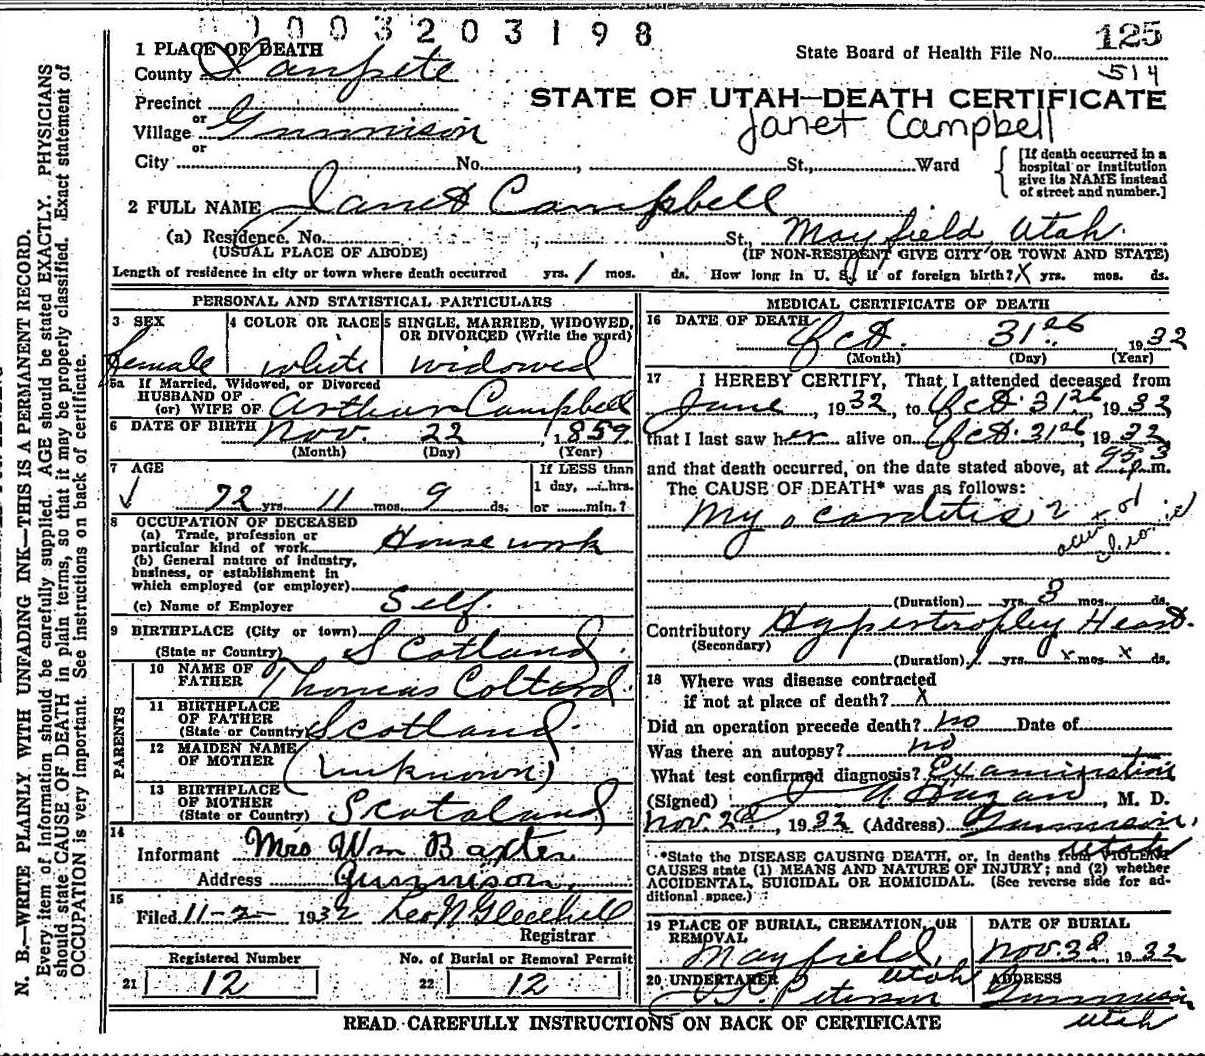 1003203198
1 PLACE OF DEATH
State Board of Health File No. 125
County Sanpete
514
Precinct
STATE OF UTAH—DEATH CERTIFICATE
or
Village Gunnison
Janet Campbell
or
City No. , St., Ward
[If death occurred in a hospital or institution give its NAME instead of street and number.]
2 FULL NAME Janet Campbell
(a) Residence. No. , St., Mayfield Utah.
(USUAL PLACE OF ABODE) (IF NON-RESIDENT GIVE CITY OR TOWN AND STATE)
Length of residence in city or town where death occurred yrs. 1 mos. ds. How long in U. S., if of foreign birth? X yrs. mos. ds.
PERSONAL AND STATISTICAL PARTICULARS
3 SEX
female
4 COLOR OR RACE
white
5 SINGLE, MARRIED, WIDOWED, OR DIVORCED (Write the word)
widowed
5a If Married, Widowed, or Divorced
HUSBAND OF
(or) WIFE OF Arthur Campbell
6 DATE OF BIRTH Nov. 22, 1859
(Month) (Day) (Year)
7 AGE
72 yrs. 11 mos. 9 ds.
If LESS than
1 day, hrs.
or min.?
8 OCCUPATION OF DECEASED
(a) Trade, profession or
particular kind of work House work
(b) General nature of industry,
business, or establishment in
which employed (or employer)
(c) Name of Employer Self.
9 BIRTHPLACE (City or town)
(State or Country) Scotland
PARENTS
10 NAME OF
FATHER Thomas Coltard
11 BIRTHPLACE
OF FATHER
(State or Country) Scotland
12 MAIDEN NAME
OF MOTHER (unknown)
13 BIRTHPLACE
OF MOTHER
(State or Country) Scotaland
14
Informant Mrs Wm Baxter
Address Gunnison,
15
Filed 11-2- 1932 Leo N Gledhill
Registrar
Registered Number
21 12
No. of Burial or Removal Permit
22 12
MEDICAL CERTIFICATE OF DEATH
16 DATE OF DEATH Oct. 31st, 1932
(Month) (Day) (Year)
17 I HEREBY CERTIFY, That I attended deceased from
June, 1932, to Oct. 31st, 1932
that I last saw her alive on Oct. 31st, 1932
and that death occurred, on the date stated above, at p.m.
The CAUSE OF DEATH* was as follows:
Myocarditis
(Duration) yrs. 3 mos. ds.
Contributory Hyperstrophy Heart.
(Secondary)
(Duration) 1 yrs. x mos. x ds.
18 Where was disease contracted
if not at place of death? X
Did an operation precede death? no Date of
Was there an autopsy? no
What test confirmed diagnosis? Examination
(Signed) J A Hagan, M. D.
Nov. 2d, 1932 (Address) Gunnison,
Utah
*State the DISEASE CAUSING DEATH, or, in deaths from VIOLENT
CAUSES state (1) MEANS AND NATURE OF INJURY; and (2) whether
ACCIDENTAL, SUICIDAL OR HOMICIDAL. (See reverse side for ad-
ditional space.)
19 PLACE OF BURIAL, CREMATION, OR
REMOVAL
Mayfield, Utah
DATE OF BURIAL
Nov. 3d, 1932
20 UNDERTAKER
Peterson
ADDRESS
Gunnison
Utah
READ CAREFULLY INSTRUCTIONS ON BACK OF CERTIFICATE
N. B.—WRITE PLAINLY WITH UNFADING INK—THIS IS A PERMANENT RECORD.
Every item of information should be carefully supplied. AGE should be stated EXACTLY. PHYSICIANS
should state CAUSE OF DEATH in plain terms, so that it may be properly classified. Exact statement of
OCCUPATION is very important. See instructions on back of certificate.